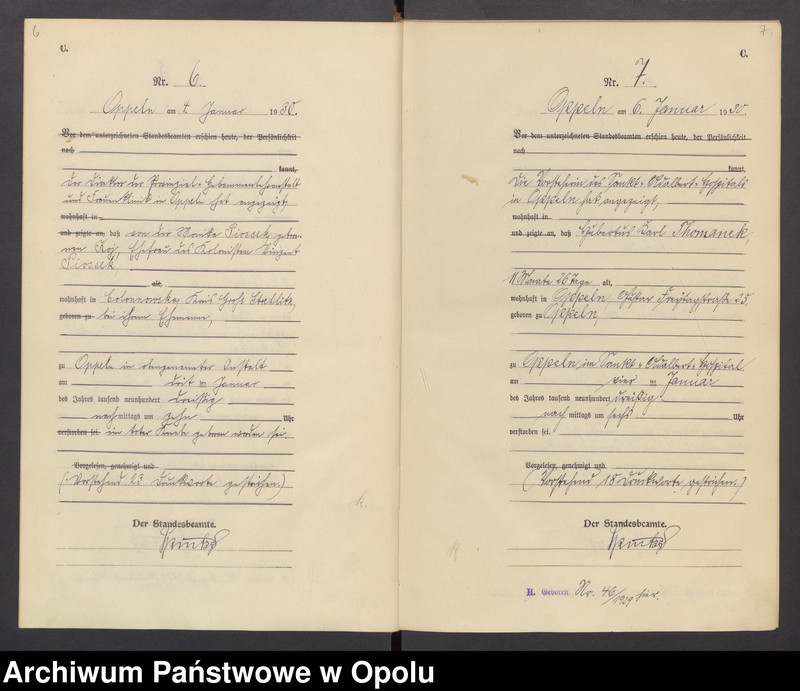 6
C.
Nr. 6.
Oppeln am 4. Januar 1930.
Vor dem unterzeichneten Standesbeamten erschien heute, der Persönlichkeit
nach
kannt,
Der Direktor der Provinzial-Hebammenlehranstalt
und Frauenklinik in Oppeln hat angezeigt,
wohnhaft in
und zeigte an, daß von der Monika Piossek gebo-
nen Koj, Ehefrau des Kolonisten Vinzent
Piossek,
alt,
wohnhaft in Colonnowska, Kreis Groß Strehlitz,
geboren zu bei ihrem Ehemanne,
zu Oppeln in obengenannter Anstalt
am drei ten Januar
des Jahres tausend neunhundert dreißig
nachmittags um zehn Uhr
verstorben sei. ein toter Knabe geboren worden sei.
Vorgelesen, genehmigt und
(:Vorstehend 23 Druckworte gestrichen.)
Der Standesbeamte.
7.
C.
Nr. 7.
Oppeln am 6. Januar 1930.
Vor dem unterzeichneten Standesbeamten erschien heute, der Persönlichkeit
nach
kannt,
Die Vorsteherin des Sankt-Adalbert-Hospitals
in Oppeln hat angezeigt,
wohnhaft in
und zeigte an, daß Hubertus Karl Thomanek,
11 Monate 26 Tage alt,
wohnhaft in Oppeln, Gustav Freytagstraße 25,
geboren zu Oppeln,
zu Oppeln im Sankt-Adalbert-Hospital
am vier ten Januar
des Jahres tausend neunhundert dreißig
nachmittags um sechs Uhr
verstorben sei.
Vorgelesen, genehmigt und
(Vorstehend 18 Druckworte gestrichen.)
Der Standesbeamte.
H. Geboren Nr. 46/1929 hier.
Archiwum Państwowe w Opolu